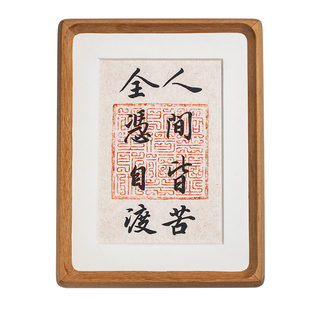 人間皆苦
全憑自渡